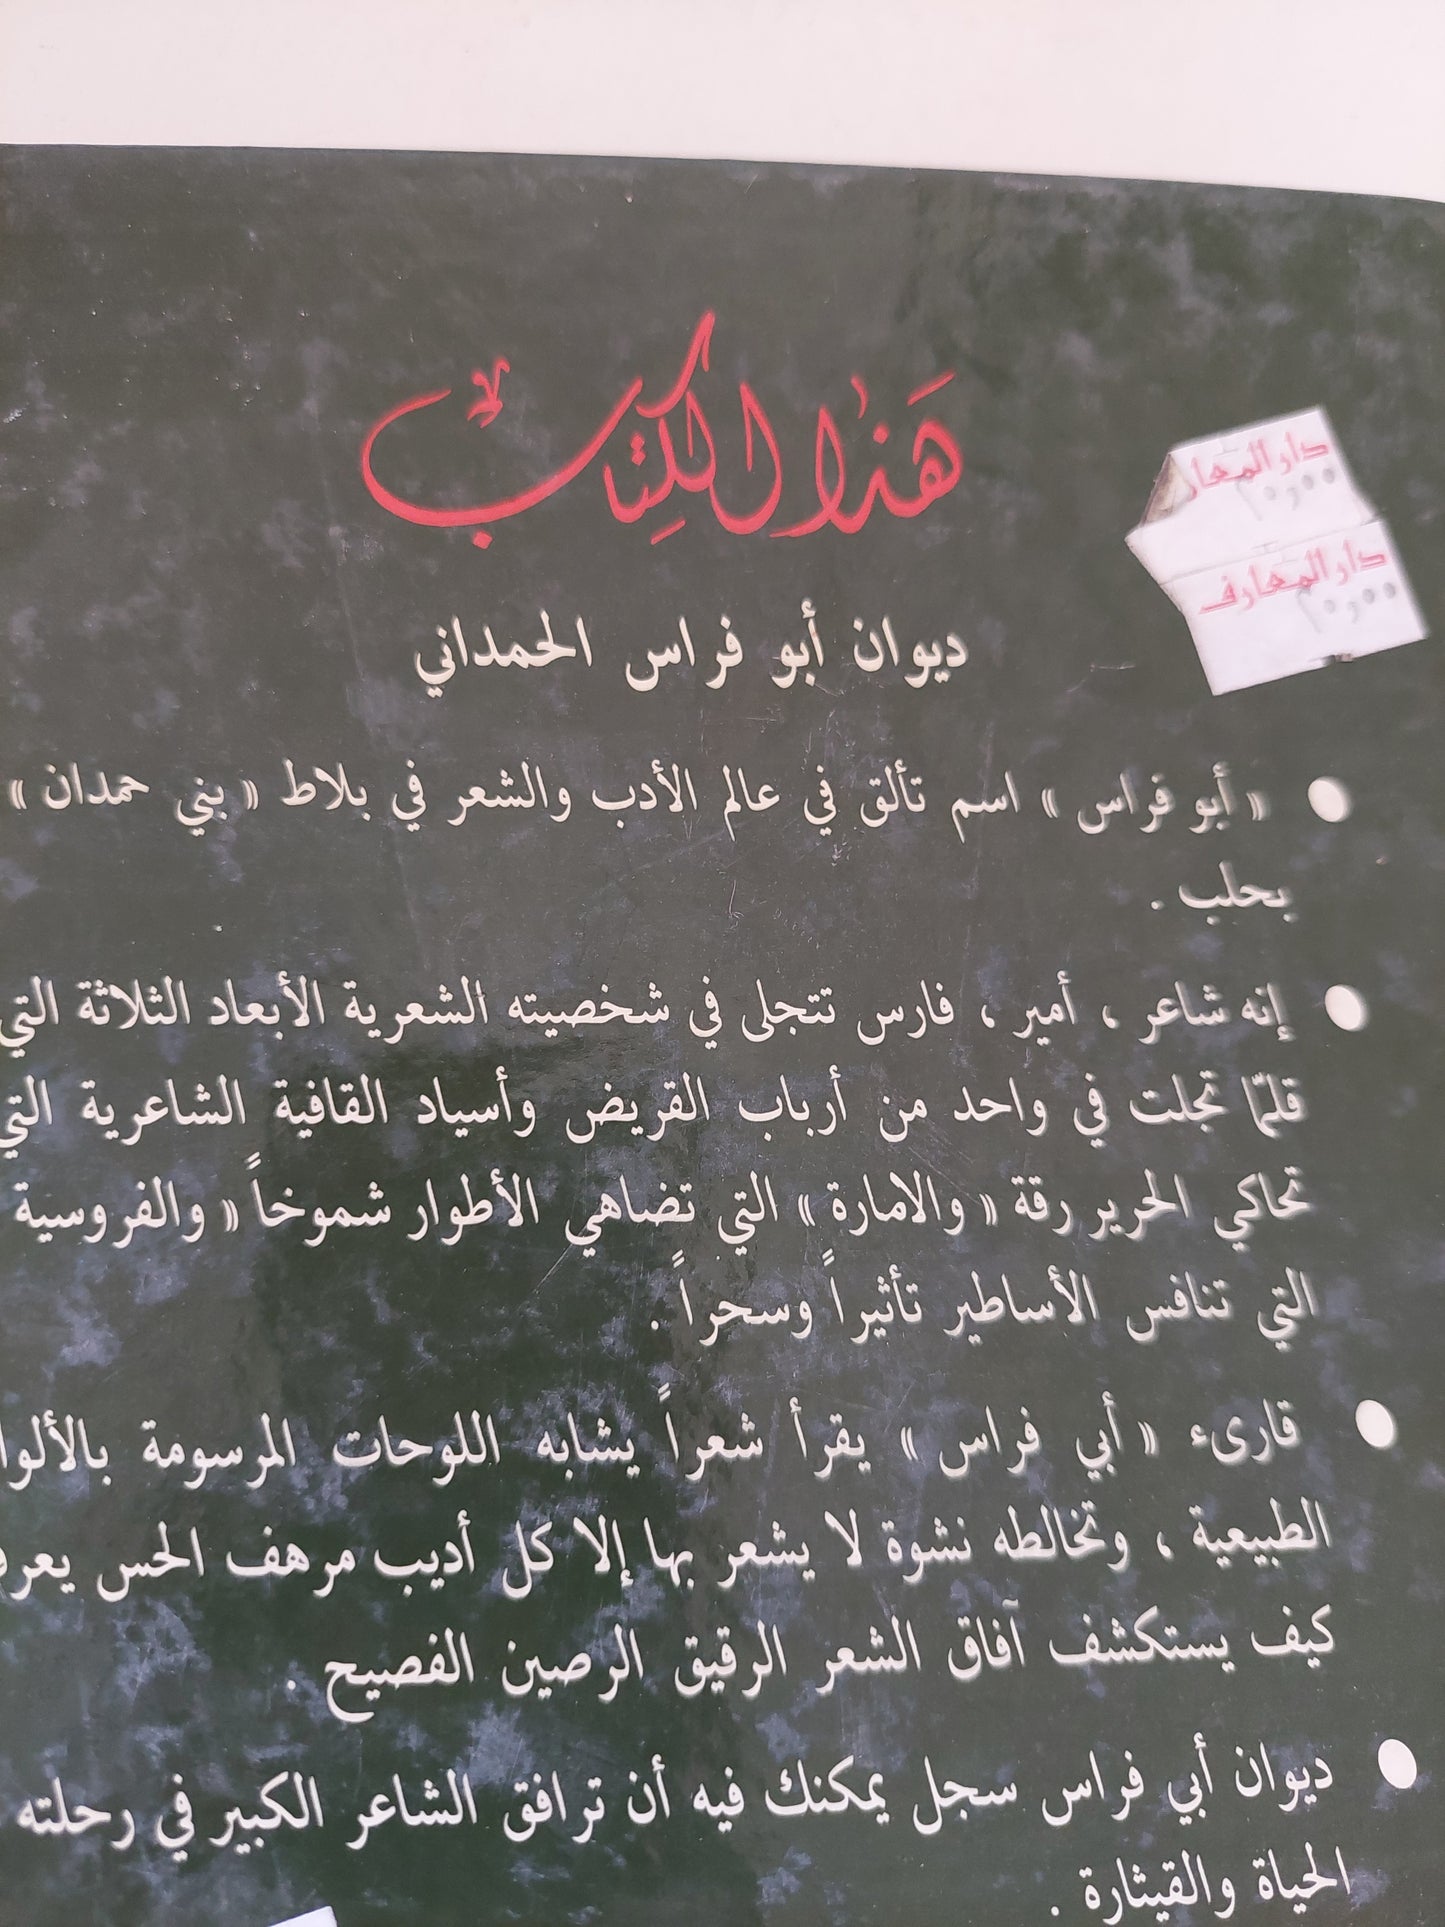 هذا الكتاب
دار المعار
٢٠,٠٠
دار المعارف
٢٠,٠٠
ديوان أبو فراس الحمداني
● « أبو فراس » اسم تألق في عالم الأدب والشعر في بلاط « بني حمدان »
بحلب .
● إنه شاعر ، أمير ، فارس تتجلى في شخصيته الشعرية الأبعاد الثلاثة التي
قلمّا تجلت في واحد من أرباب القريض وأسياد القافية الشاعرية التي
تحاكي الحرير رقة « والامارة » التي تضاهي الأطوار شموخاً « والفروسية
التي تنافس الأساطير تأثيراً وسحراً .
● قارىء « أبي فراس » يقرأ شعراً يشابه اللوحات المرسومة بالألوا
الطبيعية ، وتخالطه نشوة لا يشعر بها إلا كل أديب مرهف الحس يعرف
كيف يستكشف آفاق الشعر الرقيق الرصين الفصيح .
● ديوان أبي فراس سجل يمكنك فيه أن ترافق الشاعر الكبير في رحلته
الحياة والقيثارة .